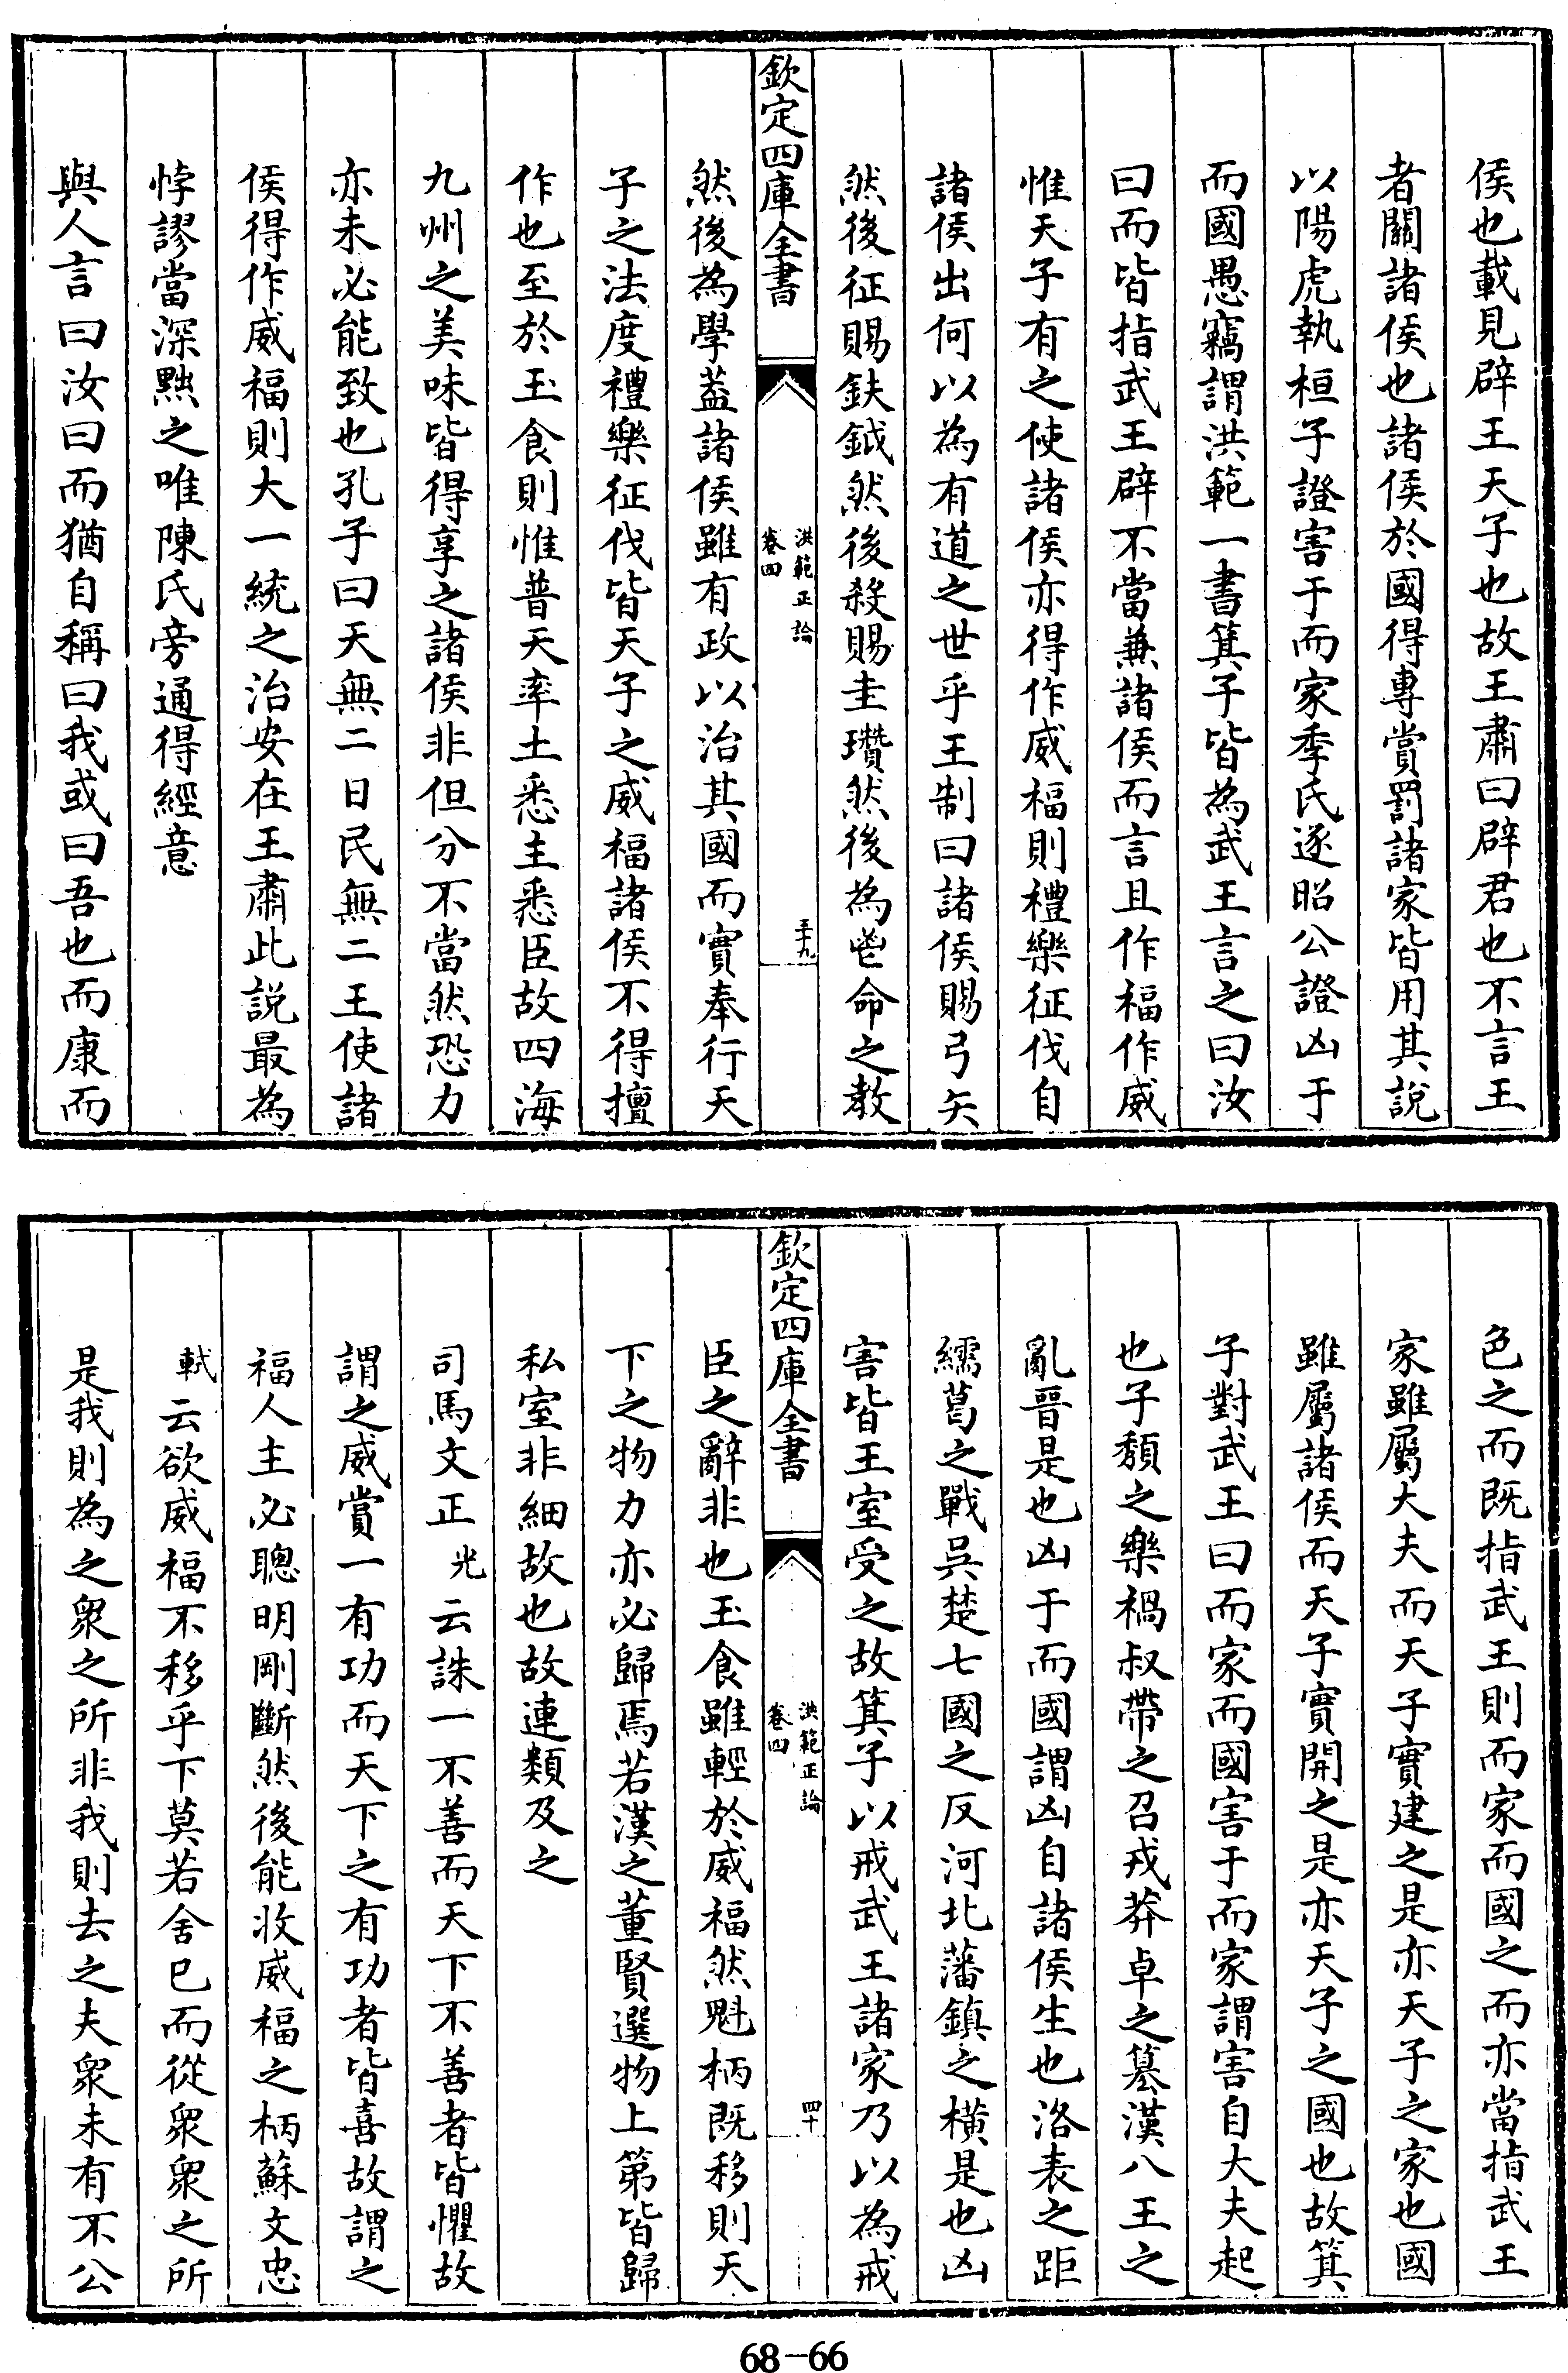 侯也載見辟王天子也故王肅曰辟君也不言王
者關諸侯也諸侯於國得專賞罰諸家皆用其說
以陽虎執桓子證害于而家季氏逐昭公證凶于
而國愚竊謂洪範一書箕子皆為武王言之曰汝
曰而皆指武王辟不當兼諸侯而言且作福作威
惟天子有之使諸侯亦得作威福則禮樂征伐自
諸侯出何以為有道之世乎王制曰諸侯賜弓矢
然後征賜鈇鉞然後殺賜圭瓚然後為鬯命之教
欽定四庫全書
洪範正論
卷四
三十九
然後為學蓋諸侯雖有政以治其國而實奉行天
子之法度禮樂征伐皆天子之威福諸侯不得擅
作也至於玉食則惟普天率土悉主悉臣故四海
九州之美味皆得享之諸侯非但分不當然恐力
亦未必能致也孔子曰天無二日民無二王使諸
侯得作威福則大一統之治安在王肅此說最為
悖謬當深黜之唯陳氏旁通得經意
與人言曰汝曰而猶自稱曰我或曰吾也而康而
色之而既指武王則而家而國之而亦當指武王
家雖屬大夫而天子實建之是亦天子之家也國
雖屬諸侯而天子實開之是亦天子之國也故箕
子對武王曰而家而國害于而家謂害自大夫起
也子頹之樂禍叔帶之召戎莽卓之簒漢八王之
亂晉是也凶于而國謂凶自諸侯生也洛表之距
繻葛之戰吳楚七國之反河北藩鎮之橫是也凶
害皆王室受之故箕子以戒武王諸家乃以為戒
欽定四庫全書
洪範正論
卷四
四十
臣之辭非也玉食雖輕於威福然魁柄既移則天
下之物力亦必歸焉若漢之董賢選物上第皆歸
私室非細故也故連類及之
司馬文正光云誅一不善而天下不善者皆懼故
謂之威賞一有功而天下之有功者皆喜故謂之
福人主必聰明剛斷然後能收威福之柄蘇文忠
軾云欲威福不移乎下莫若舍已而從衆衆之所
是我則為之衆之所非我則去之夫衆未有不公
68-66